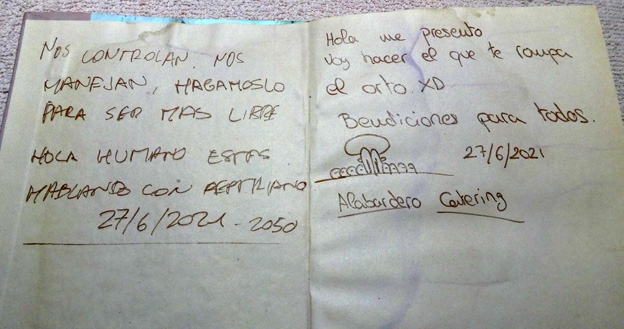 NOS CONTROLAN. NOS
MANEJAN, HAGAMOSLO
PARA SER MAS LIBRE
HOLA HUMANO ESTAS
HABLANDO CON REPTILIANO
27/6/2021-2050
Hola me presento
Voy hacer el que te rompa
el orto XD
Bendiciones para todos.
27/6/2021
Alabardero Catering